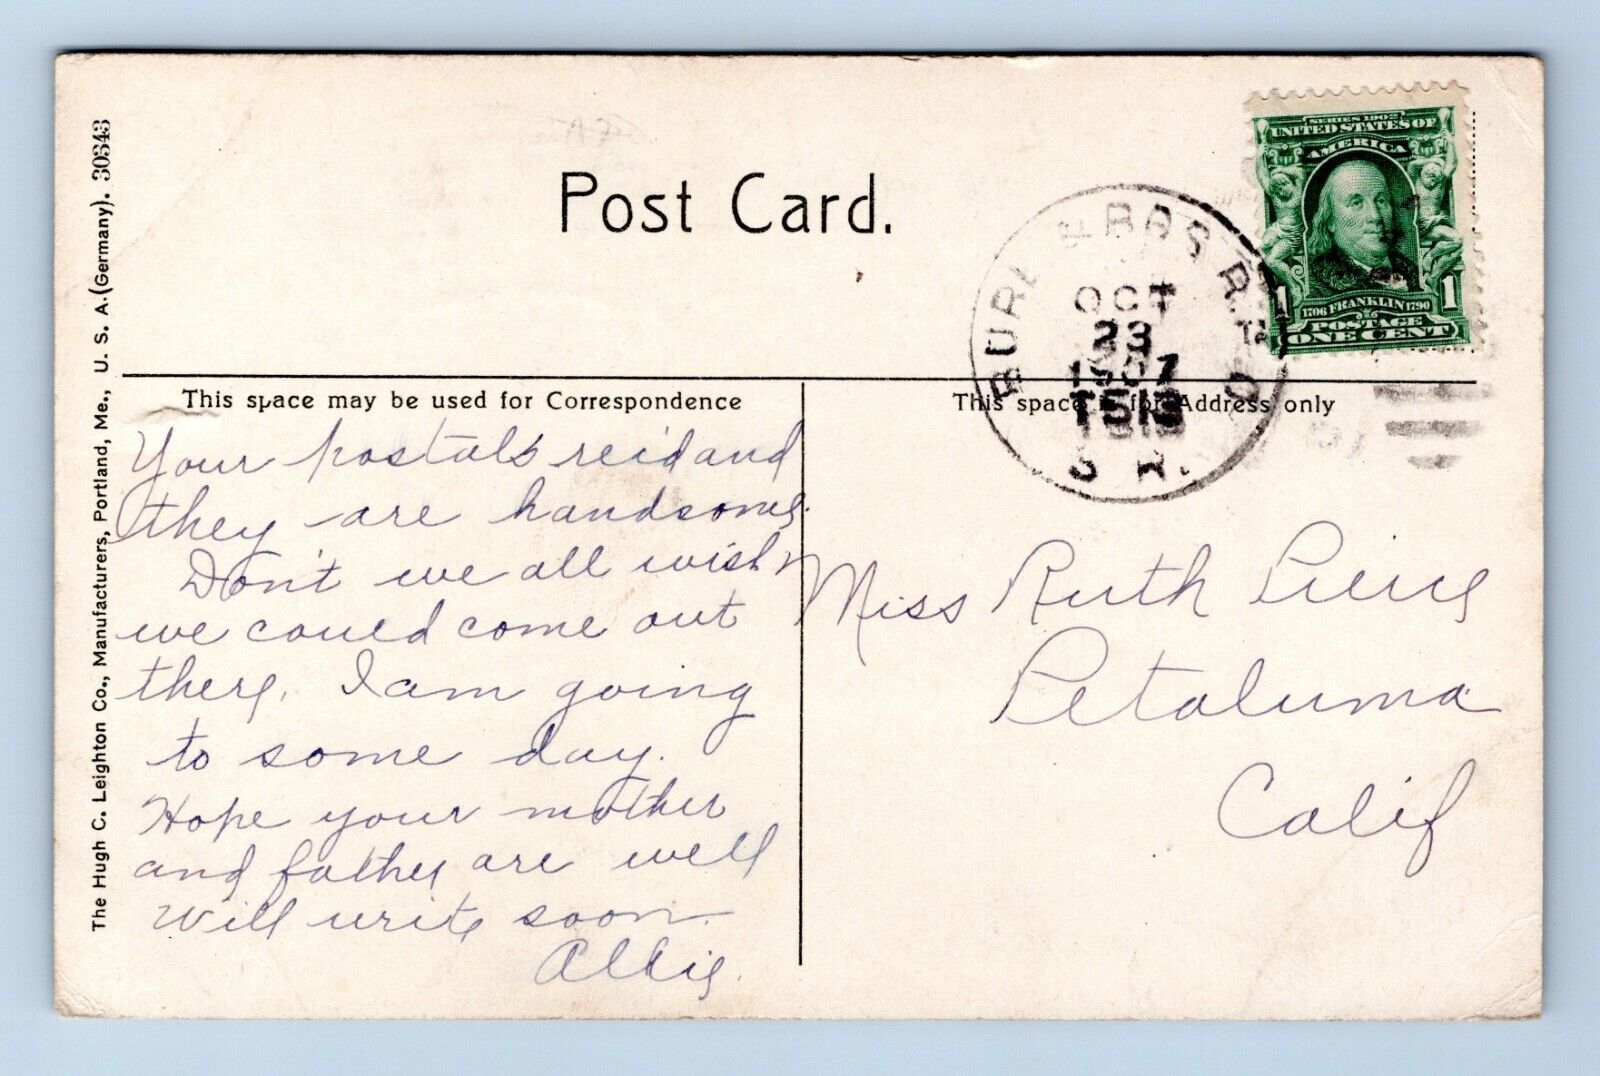 Post Card.
SERIES 1902
UNITED STATES OF
AMERICA
1 1
1706 FRANKLIN 1790
POSTAGE
ONE CENT
BURL & BOS
OCT
23
1907
The Hugh C. Leighton Co., Manufacturers, Portland, Me., U. S. A. (Germany). 30343
This space may be used for Correspondence
Your postals rec'd and
they are handsome.
Don't we all wish
we could come out
there. I am going
to some day.
Hope your mother
and father are well
Will write soon.
Allie.
This space is for Address only
Miss Ruth Pierce
Petaluma
Calif